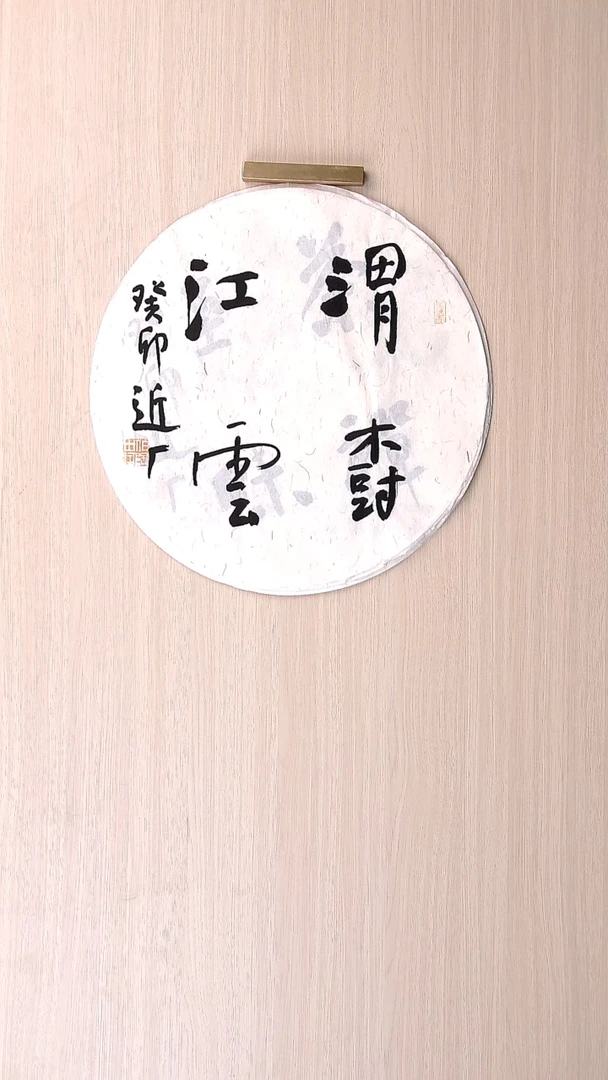 渭樹
江雲
癸卯近厂